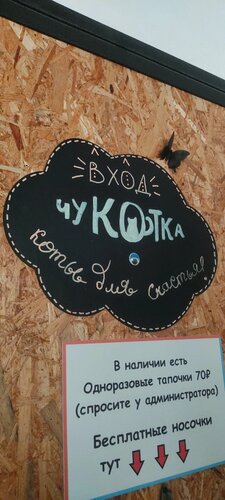 ВХОД
чуКОтКА
коты для счастья!
В наличии есть
Одноразовые тапочки 70₽
(спросите у администратора)
Бесплатные носочки
тут